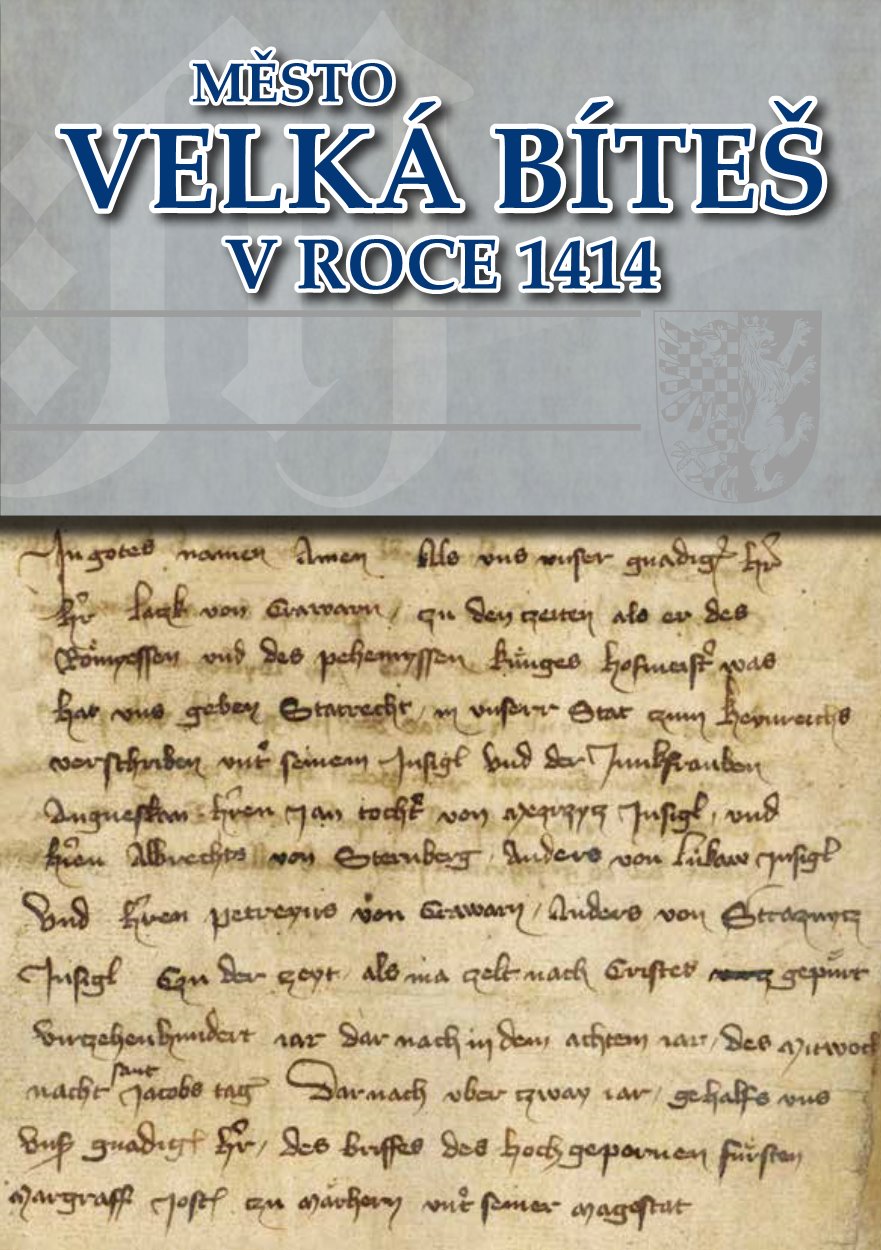 MĚSTO
VELKÁ BÍTEŠ
V ROCE 1414
In gotes namen Amen Als uns unser gnadigr hr̄
hr̄ latzk von Crawarn / zu den czeiten als er des
Römyssen und des pehemyssen kunges hofmeistr was
hat uns geben Statrecht / in unserr Stat czum heynreichs
verschriben untr seinem Insigl und der Junkfrauben
hr̄en Jan tochtr von Insigl / und
hr̄en Albrechts von Sternberg / Anders von lukaw Insigl
Und hr̄en petreyns von Crawarn / Anders von
Insigl Czu der czeyt / als ma czelt nach Cristes gepurt
virczehenhundert iar dar nach in dem achtem iar / des Mitwoch
nacht sant Jacobs tag Dar nach uber czway iar / gehalfs uns
gnadigr hr̄ / des briffes des hochgepornen fürsten
Margraff Jost czu Marhern untr seiner magestat